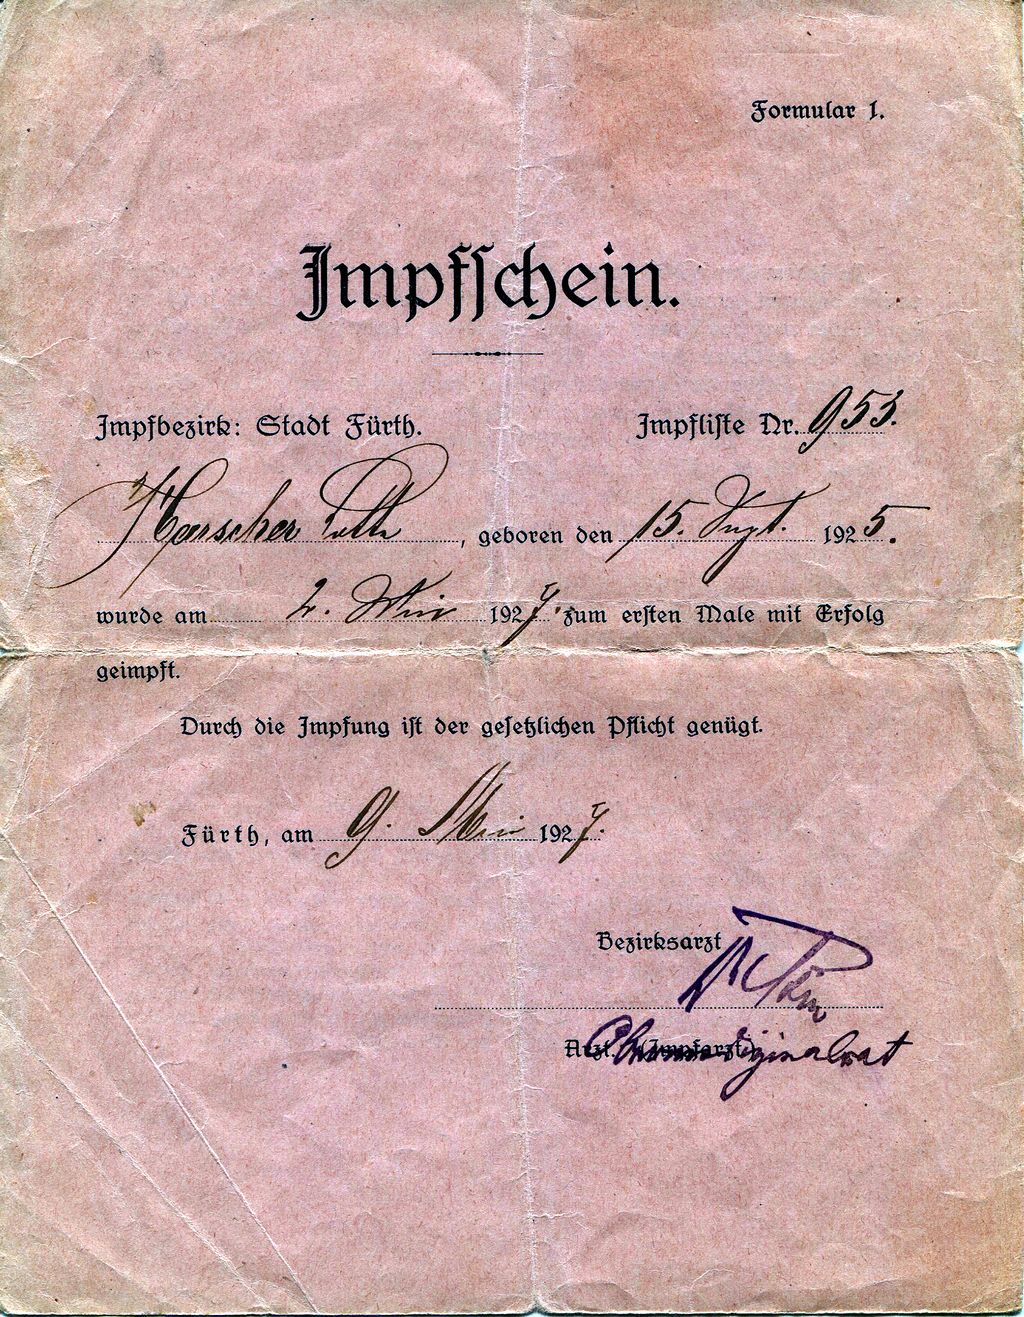 Formular 1.
Impfschein.
Impfbezirk: Stadt Fürth. Impfliste Nr. 953.
geboren den 15. Sept. 1925.
wurde am 2. Mai 1927. zum ersten Male mit Erfolg
geimpft.
Durch die Impfung ist der gesetzlichen Pflicht genügt.
Fürth, am 9. Mai 1927.
Bezirksarzt
Arzt. (Impfarzt).